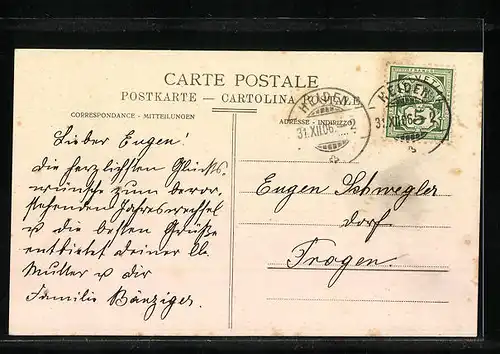 CARTE POSTALE
POSTKARTE — CARTOLINA POSTALE
CORRESPONDANCE - MITTEILUNGEN
ADRESSE - INDIRIZZO
HEIDEN
31.XII.06
HEIDEN
31.XII.06
5
Lieber Eugen!
Die herzlichsten Glücks-
wünsche zum bevor-
stehenden Jahreswechsel
u die besten Grüße
entbietet deiner lb.
Mutter u dir
Familie Bänziger.
Eugen Schwegler
Dorf.
Trogen.